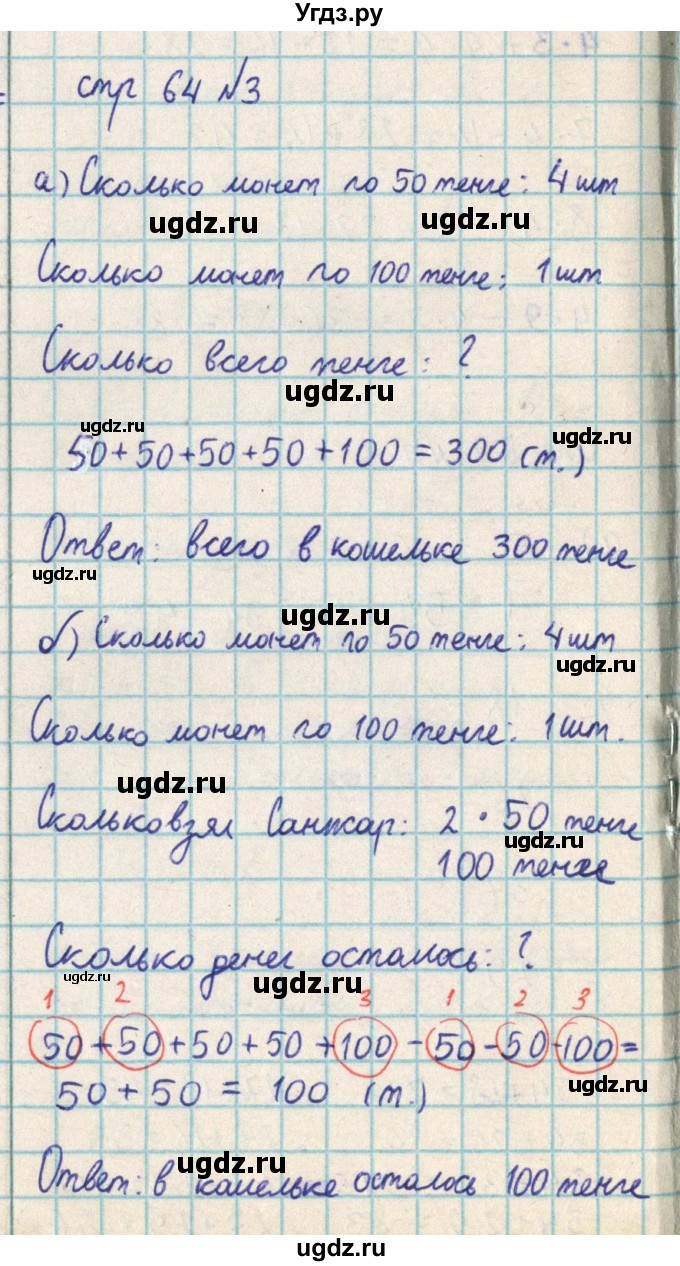 Угдз.ру
стр 64 №3
а) Сколько монет по 50 тенге: 4 шт
ugdz.ru ugdz.ru
Сколько монет по 100 тенге: 1 шт
Сколько всего тенге: ?
ugdz.ru
ugdz.ru ugdz.ru
50+50+50+50+100=300 (т.)
Ответ: всего в кошельке 300 тенге
ugdz.ru
ugdz.ru
б) Сколько монет по 50 тенге: 4 шт
ugdz.ru
Сколько монет по 100 тенге: 1 шт.
ugdz.ru
Сколько взял Санжар: 2 · 50 тенге
ugdz.ru
100 тенге
Сколько денег осталось: ?
ugdz.ru ugdz.ru
1 2 3 1 2 3
50+50+50+50+100-50-50-100=
ugdz.ru
50+50=100 (т.)
ugdz.ru
Ответ: в кошельке осталось 100 тенге
ugdz.ru